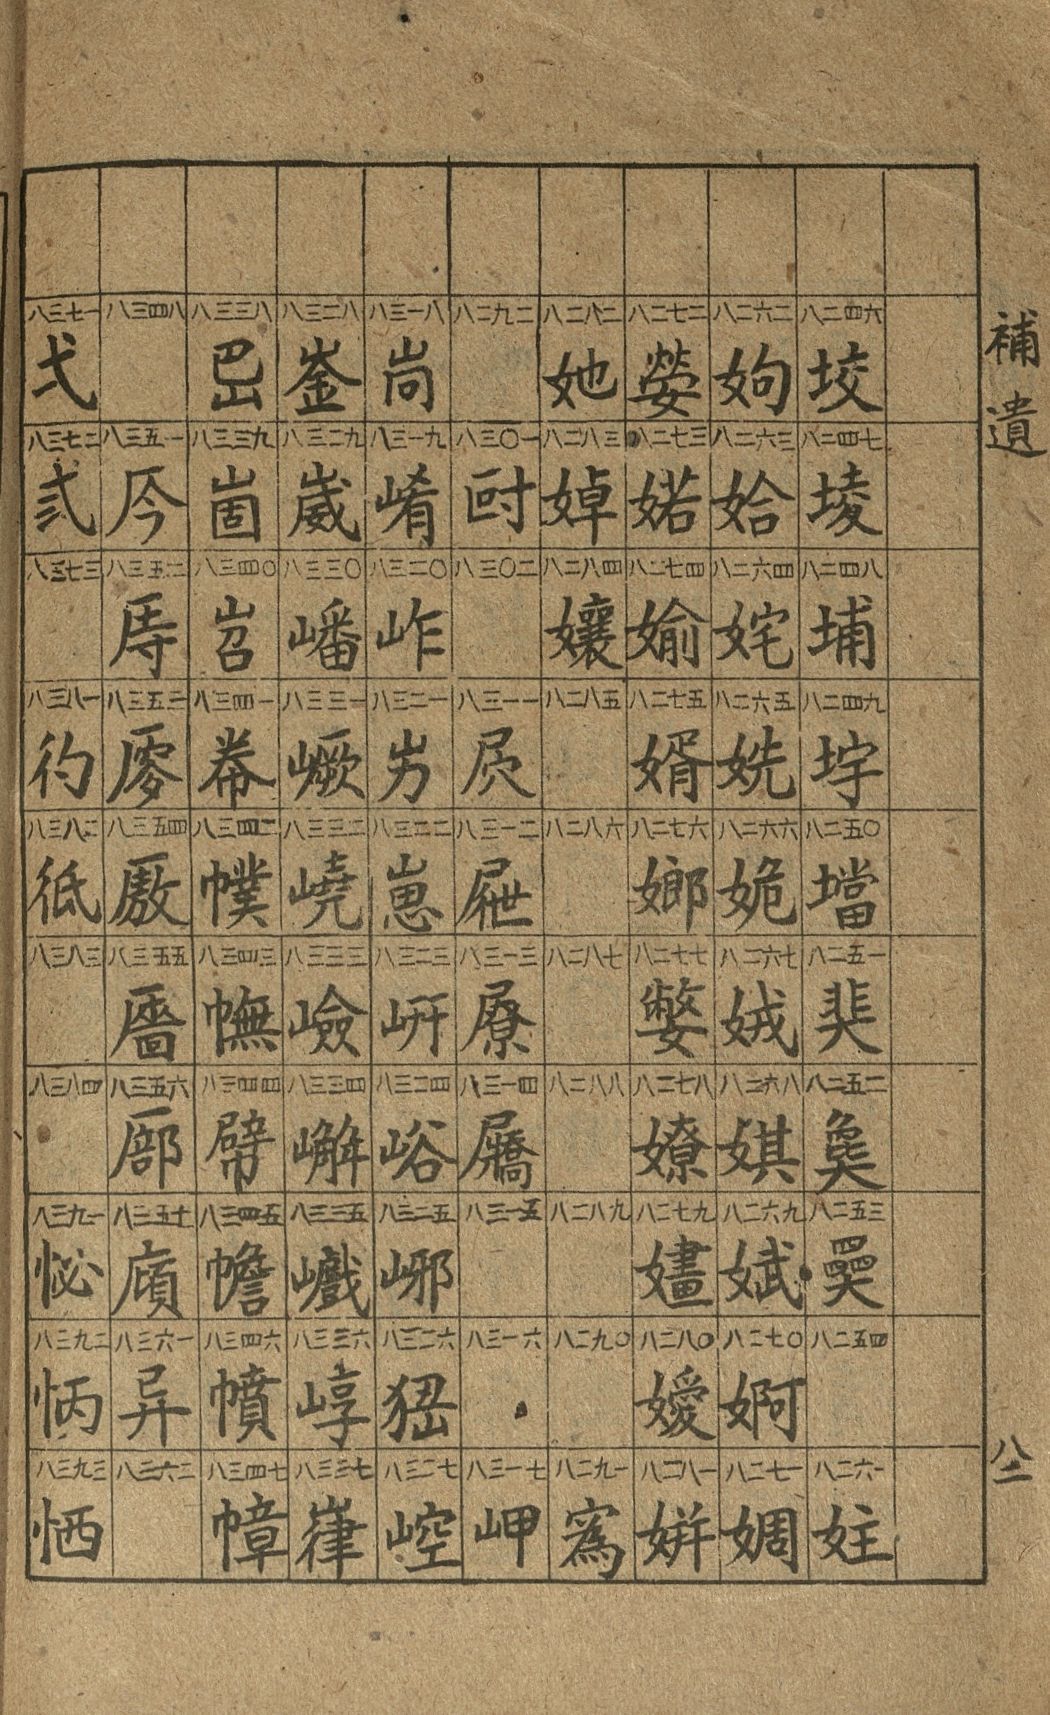 補遺
八二
八二四六 垵
八二四七 堎
八二四八 埔
八二四九 垶
八二五〇 壋
八二五一 奜
八二五二
八二五三
八二五四
八二六一 妵
八二六二 姁
八二六三 姶
八二六四 姹
八二六五 姺
八二六六 姽
八二六七 娀
八二六八 娸
八二六九 娬
八二七〇 婀
八二七一 婤
八二七二 嫈
八二七三 婼
八二七四 媮
八二七五 婿
八二七六 嫏
八二七七 嫳
八二七八 嫽
八二七九 嫿
八二八〇 嬡
八二八一 姘
八二八二 她
八二八三 婥
八二八四 孃
八二八五
八二八六
八二八七
八二八八
八二八九
八二九〇
八二九一 寪
八二九二
八三〇一
八三〇二
八三一一 㞋
八三一二 屜
八三一三 屪
八三一四 屩
八三一五
八三一六
八三一七 岬
八三一八 峝
八三一九 崤
八三二〇 岞
八三二一 屴
八三二二 崽
八三二三 岍
八三二四 峪
八三二五 峫
八三二六
八三二七 崆
八三二八 崟
八三二九 崴
八三三〇 嶓
八三三一 嶥
八三三二 嶢
八三三三 嶮
八三三四 嶰
八三三五 巇
八三三六 崞
八三三七 嵂
八三三八 岊
八三三九 崮
八三四〇 岧
八三四一 帣
八三四二 幞
八三四三 幠
八三四四 幦
八三四五 幨
八三四六 幩
八三四七 幛
八三四八
八三五一
八三五二 庤
八三五三 廖
八三五四 廒
八三五五 廧
八三五六 廍
八三五七 庼
八三六一 异
八三六二
八三七一 弌
八三七二 弍
八三七三
八三八一 彴
八三八二 彽
八三八三
八三八四
八三九一 怭
八三九二 怲
八三九三 恓